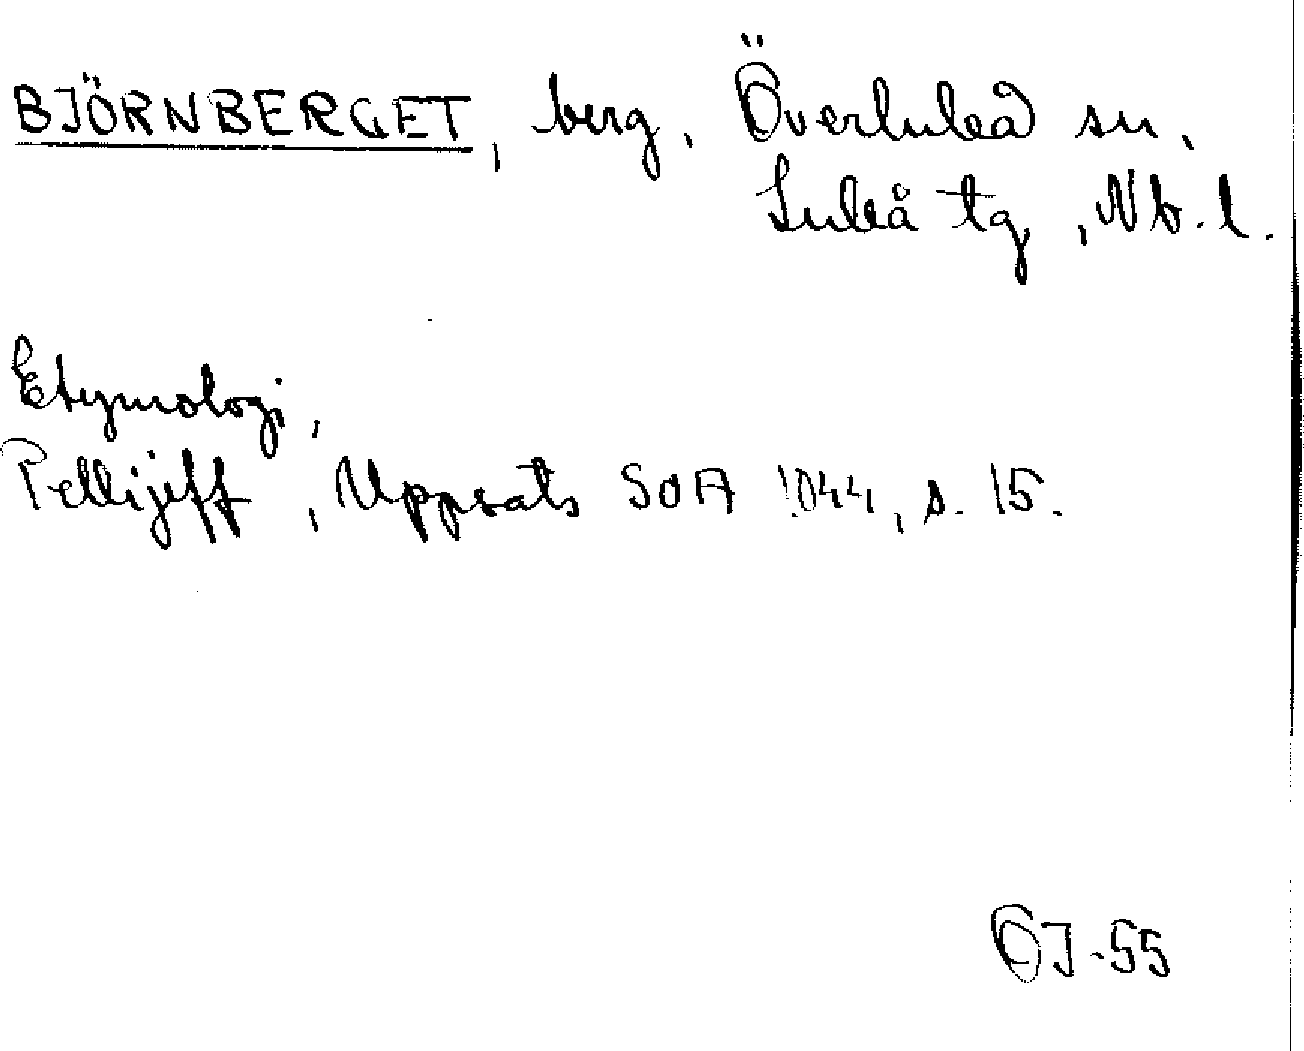 BJÖRNBERGET, berg, Överluleå sn,
Luleå tg, Nb. l.
Etymologi,
Pellijeff, Uppsats SOA 1044, s. 15.
CJ-55